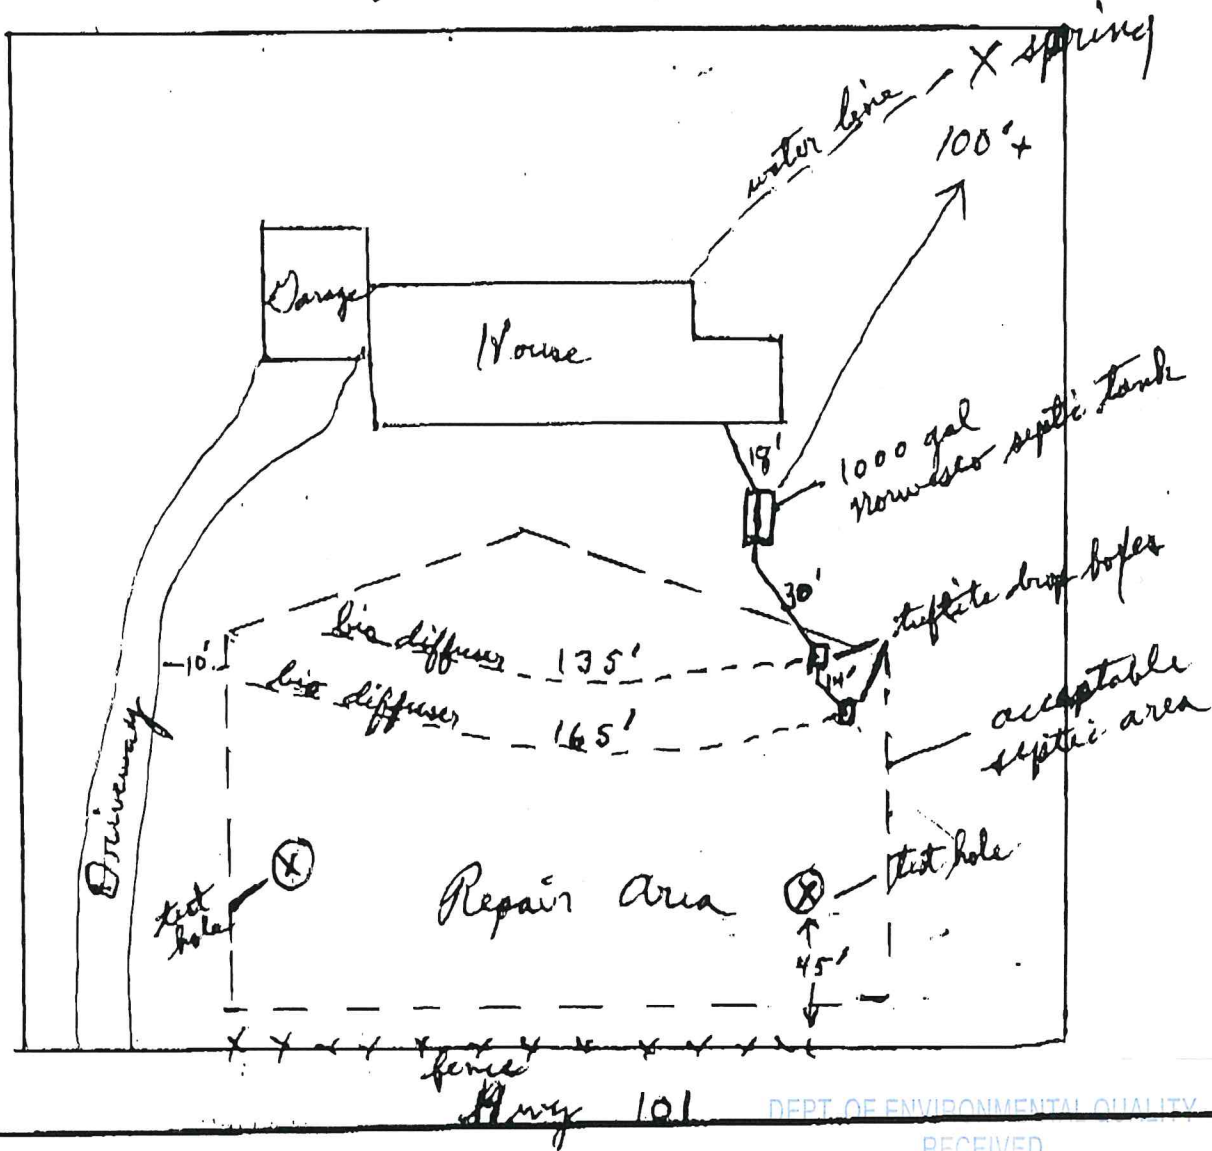 X spring
water line
100'+
Garage
House
18'
1000 gal
Norwesco septic tank
30'
tuftite drop boxes
bio diffuser 135'
10'
14'
bio diffuser 165'
acceptable
septic area
Driveway
test hole
test
hole
Repair Area
45'
fence
Hwy 101
DEPT. OF ENVIRONMENTAL QUALITY
RECEIVED